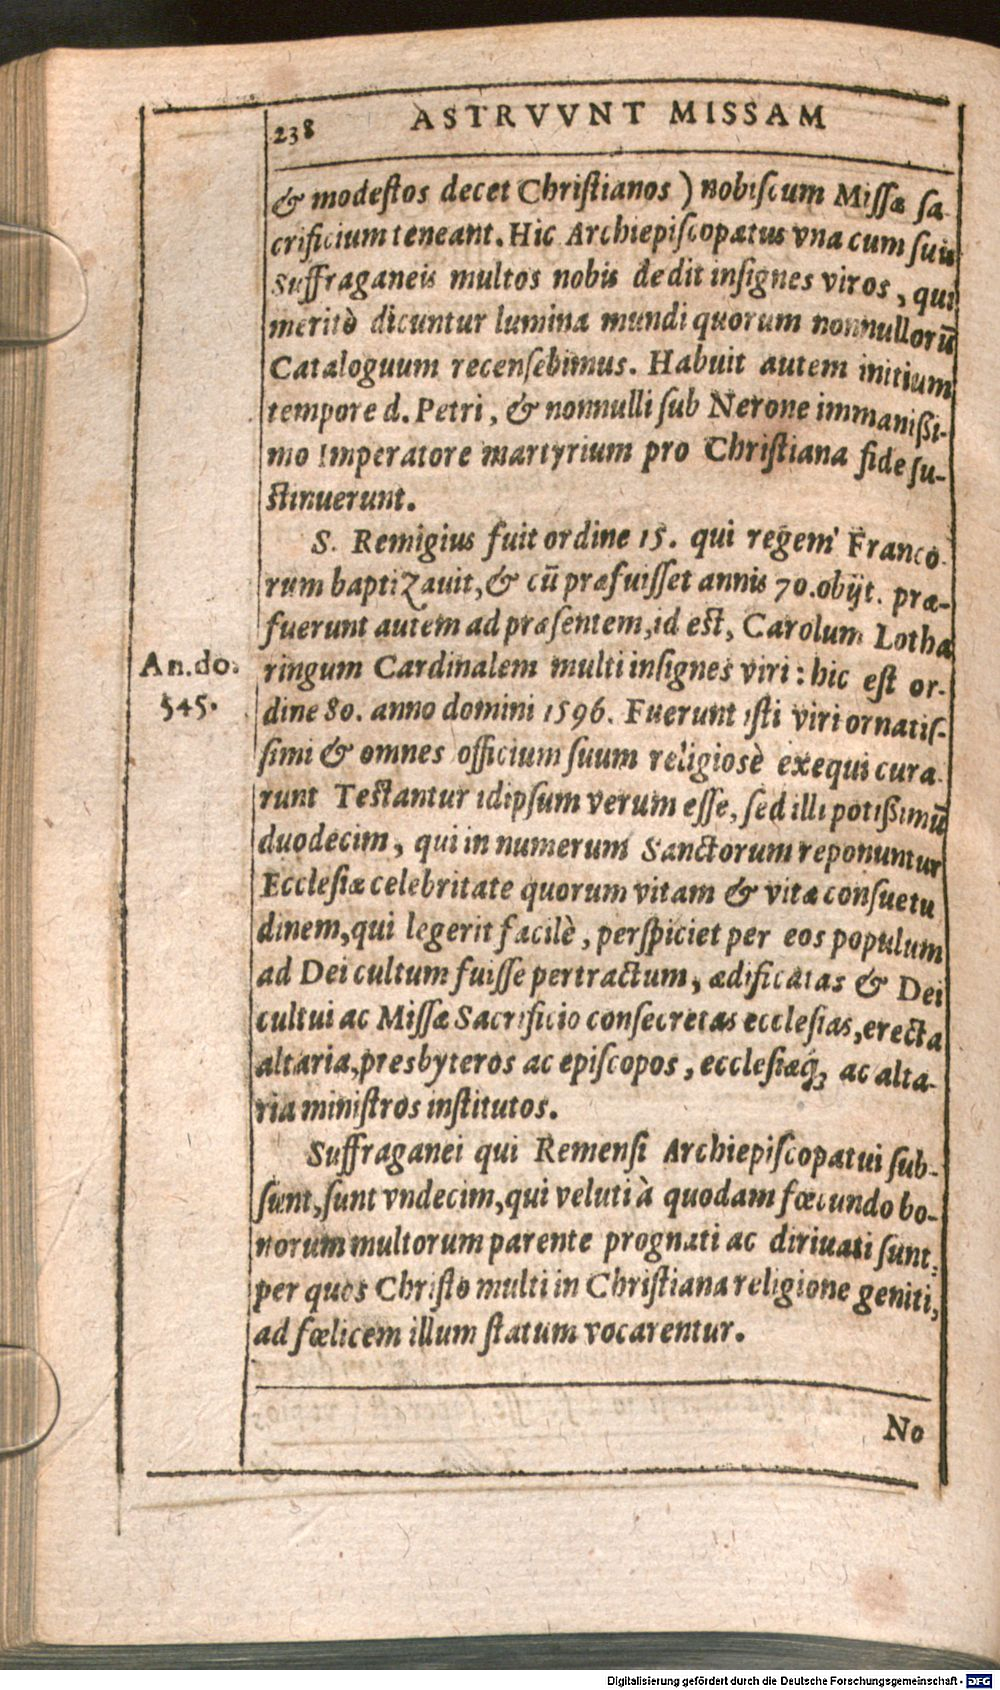 238 ASTRVVNT MISSAM
& modeſtos decet Chriſtianos ) nobiſcum Miſſæ ſa-
crificium teneant. Hic Archiepiſcopatus vna cum ſuis
Suffraganeis multos nobis dedit inſignes viros, qui
meritò dicuntur lumina mundi quorum nonnullorū
Cataloguum recenſebimus. Habuit autem initium
tempore d. Petri, & nonnulli ſub Nerone immanißi-
mo Imperatore martyrium pro Chriſtiana fide ſu-
ſtinuerunt.
S. Remigius fuit ordine 15. qui regem Franco-
rum baptizauit, & cū præfuiſſet annis 70. obijt. præ-
fuerunt autem ad præſentem, id eſt, Carolum Lotha
An. do.
545.
ringum Cardinalem multi inſignes viri : hic eſt or-
dine 80. anno domini 1596. Fuerunt iſti viri ornatiſ-
ſimi & omnes officium ſuum religioſè exequi cura-
runt Teſtantur idipſum verum eſſe, ſed illi potißimū
duodecim, qui in numerum Sanctorum reponuntur
Eccleſiæ celebritate quorum vitam & vitæ conſuetu
dinem, qui legerit facilè, perſpiciet per eos populum
ad Dei cultum fuiſſe pertractum, ædificatas & Dei
cultui ac Miſſæ Sacrificio conſecretas eccleſias, erecta
altaria, presbyteros ac epiſcopos, eccleſiæq́; ac alta-
ria miniſtros inſtitutos.
Suffraganei qui Remenſi Archiepiſcopatui ſub-
ſunt, ſunt vndecim, qui veluti à quodam fœcundo bo-
norum multorum parente prognati ac diriuati ſunt;
per quos Chriſto multi in Chriſtiana religione geniti,
ad fœlicem illum ſtatum vocarentur.
No
Digitalisierung gefördert durch die Deutsche Forschungsgemeinschaft - DFG